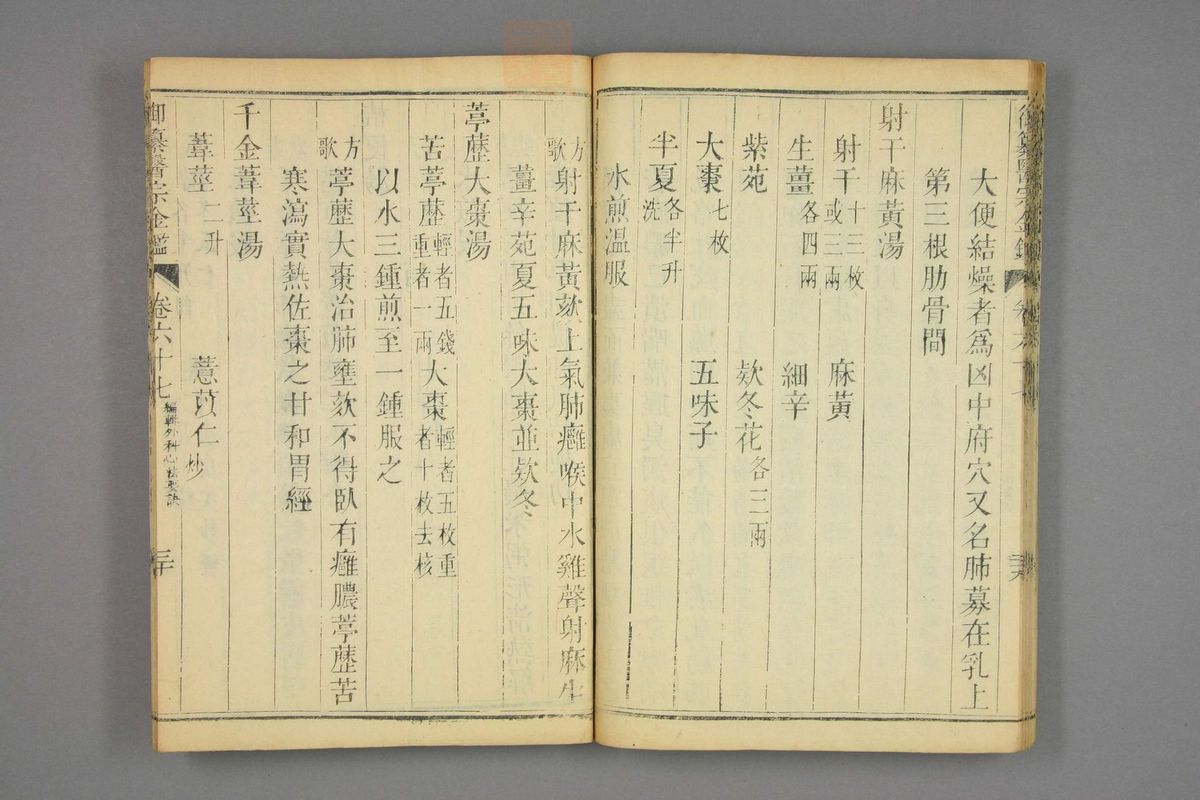 大便結燥者爲凶中府穴又名肺募在乳上
第三根肋骨間
射干麻黃湯
射干十三枚或三兩 麻黃
生薑各四兩 細辛
紫苑 欵冬花各三兩
大棗七枚 五味子
半夏各半升洗
水煎溫服
方歌射干麻黃欬上氣肺癰喉中水雞聲射麻生
薑辛苑夏五味大棗並欵冬
葶藶大棗湯
苦葶藶輕者五錢重者一兩大棗輕者五枚重者十枚去核
以水三鍾煎至一鍾服之
方歌葶藶大棗治肺壅欬不得臥有癰膿葶藶苦
寒瀉實熱佐棗之甘和胃經
千金葦莖湯
葦莖二升 薏苡仁炒
御纂醫宗金鑑 卷六十七 編輯外科心法要訣 三十